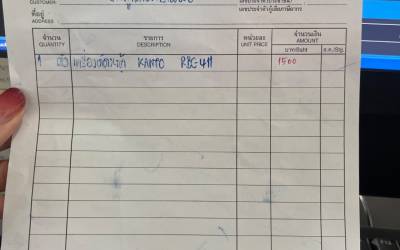 CUSTOMER
ที่อยู่
ADDRESS
เลขประจำตัวผู้เสียภาษีอากร
จำนวน
QUANTITY
รายการ
DESCRIPTION
หน่วยละ
UNIT PRICE
จำนวนเงิน
AMOUNT
1 ตัว เครื่องตัดหญ้า KANTO RBC 411 1500